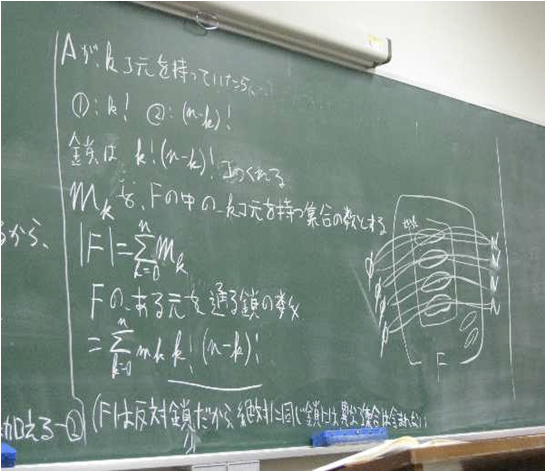 Aがk コ元を持っていたら、
①: k! ②: (n-k)!
鎖は k!(n-k)! コつくれる
m_kを、Fの中のkコ元を持つ集合の数とする
るから、
|F|=∑_{k=0}^{n} m_k
Fのある元を通る鎖の数
=∑_{k=0}^{n} m_k k! (n-k)!
加える-②
(Fは反対鎖だから、絶対に同じ鎖には異なる集合は含まれない
φ N
φ N
φ N
φ N
F